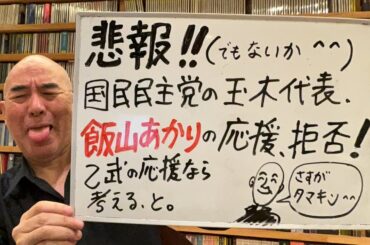 悲報!!(でもないか^^)
国民民主党の玉木代表、
飯山あかりの応援、拒否!
乙武の応援なら
考える、と。
さすが
タマキン^^